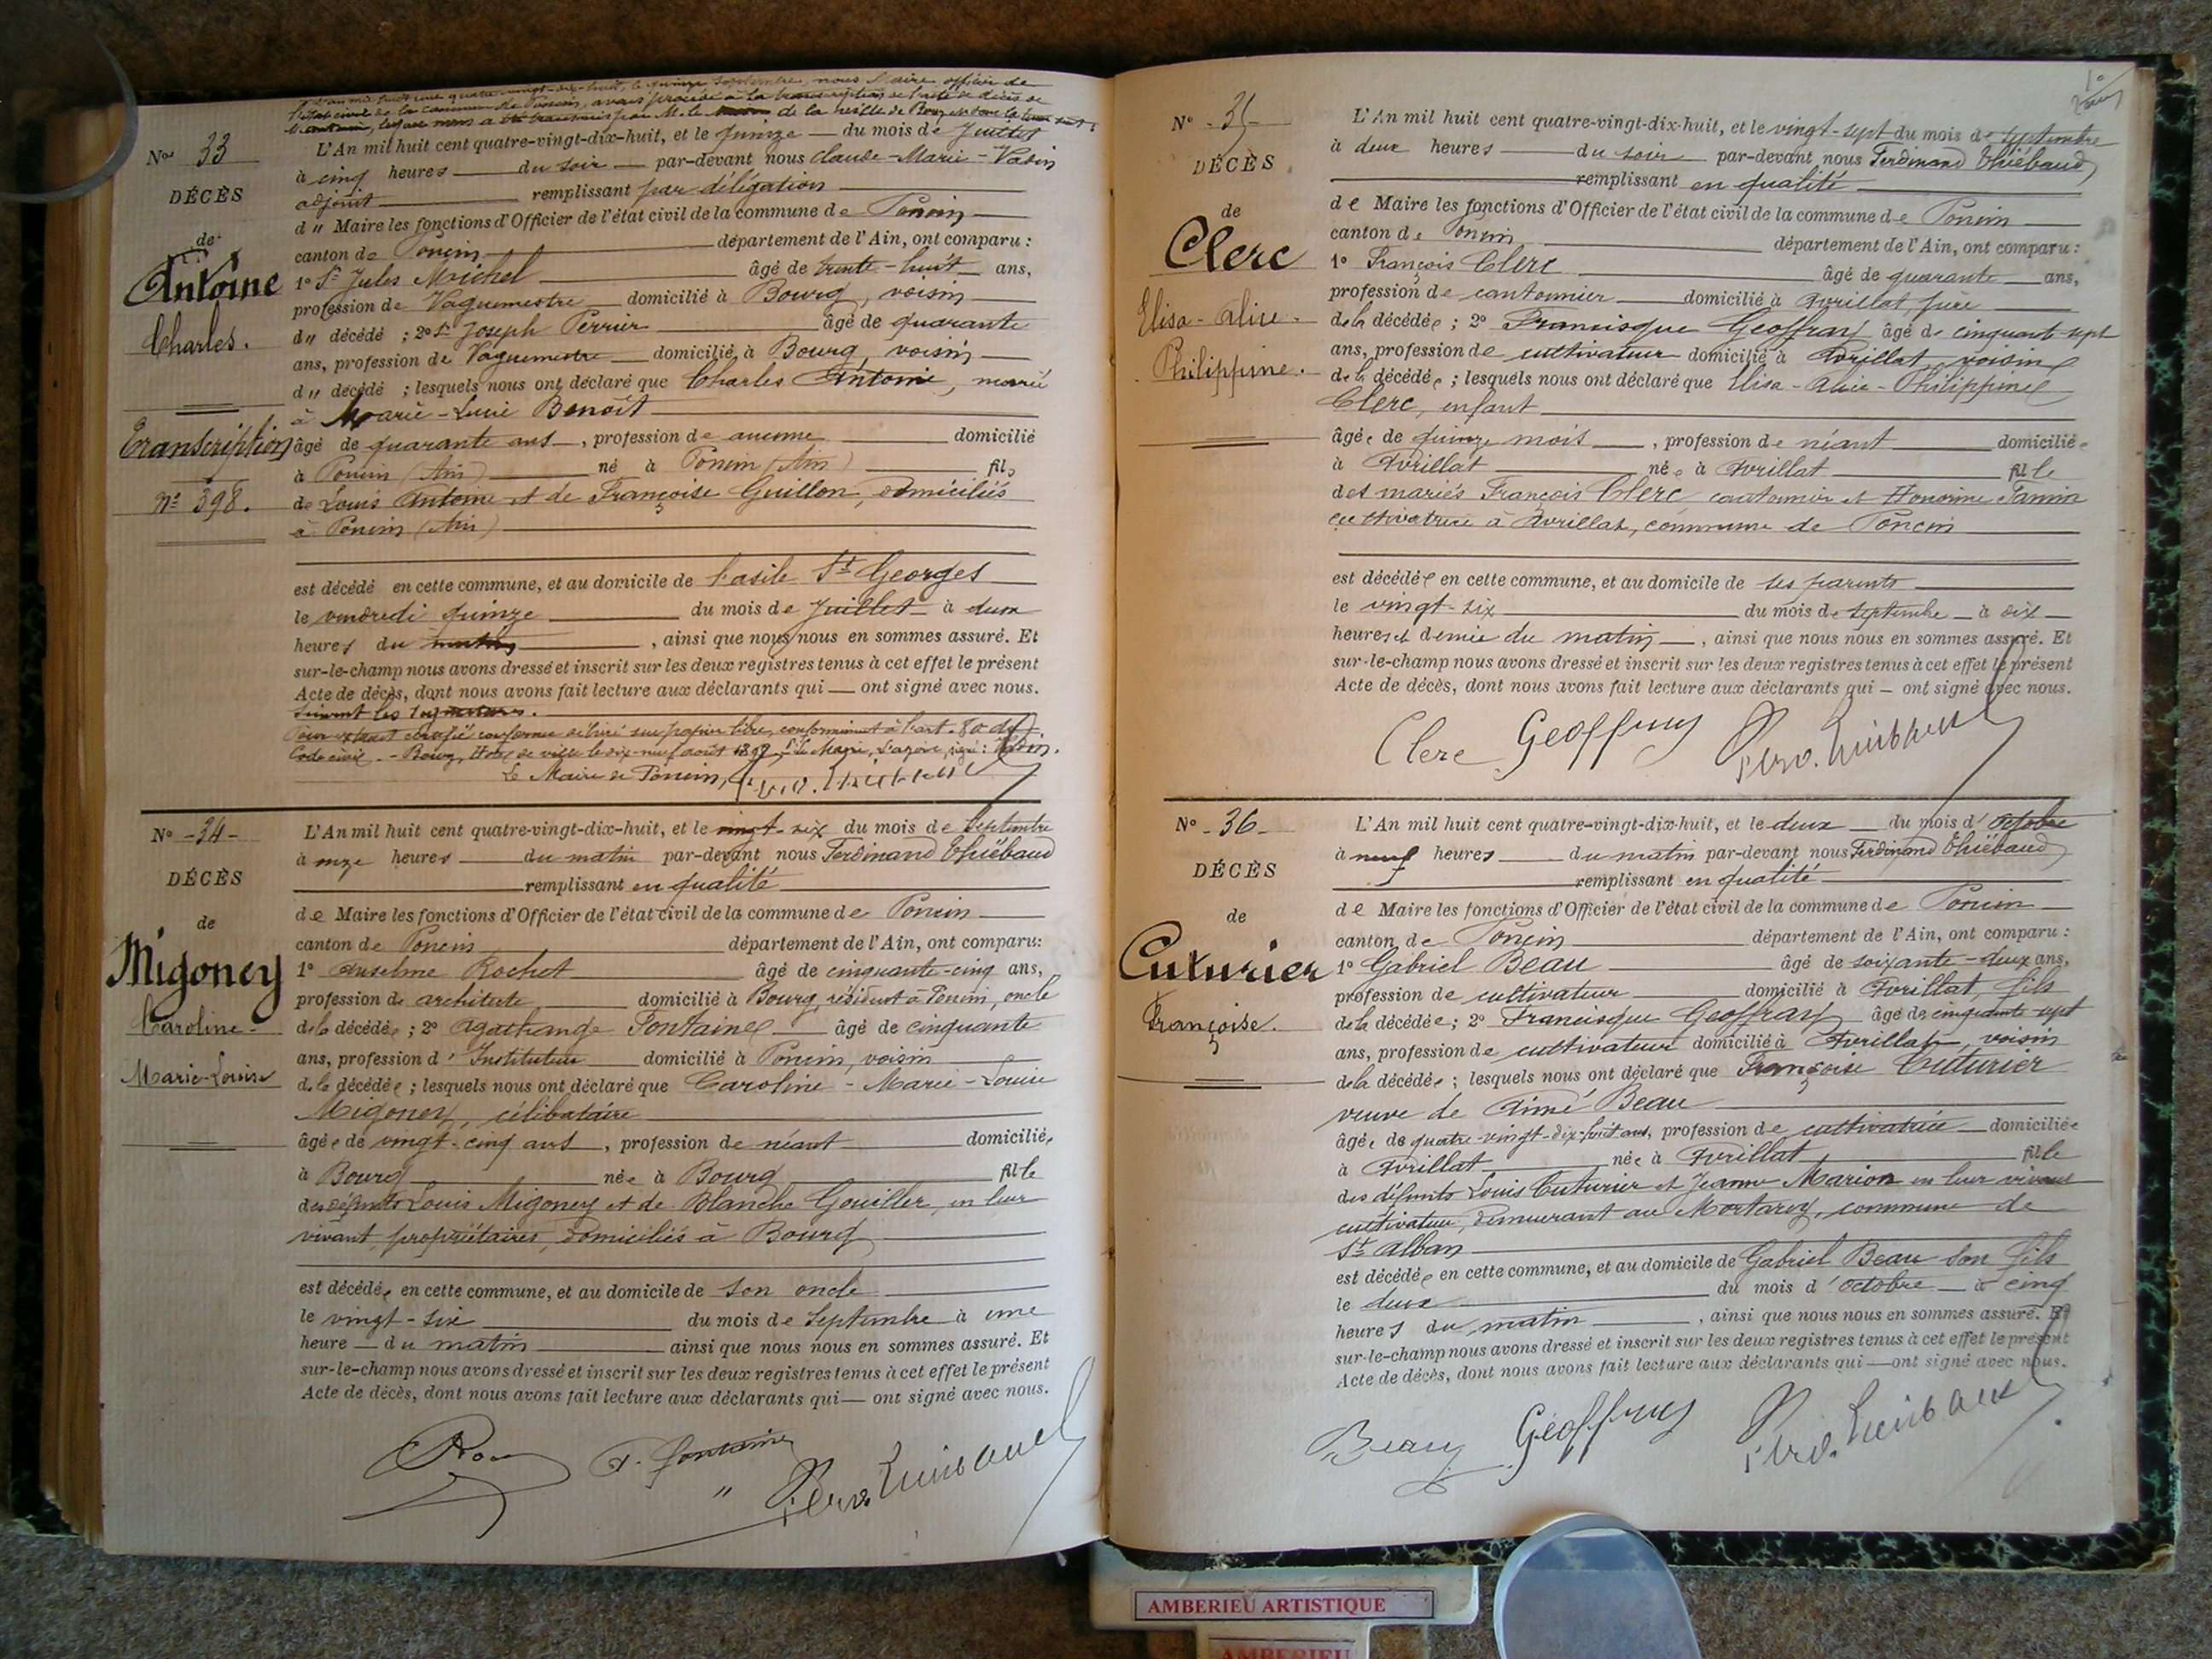 L'an mil huit cent quatre-vingt-dix-huit, le quinze septembre, nous Maire officier de
l'état civil de la commune de Poncin, avons procédé à la transcription de l'acte de décès de
lequel nous a été transmis par M. le de la ville de Bourg
Nos 33
DÉCÈS
de
Antoine
Charles.
Transcription
No 398.
L'An mil huit cent quatre-vingt-dix-huit, et le quinze — du mois de Juillet
à cinq heures — du soir — par-devant nous Claude-Marie-Vadin
adjoint — remplissant par délégation
d" Maire les fonctions d'Officier de l'état civil de la commune de Poncin
canton de Poncin — département de l'Ain, ont comparu :
1° Sr Jules Michel — âgé de trente-huit ans,
profession de Vaguemestre domicilié à Bourg, voisin
d" décédé ; 2° Sr Joseph Perrier — âgé de quarante
ans, profession de Vaguemestre domicilié à Bourg, voisin
d" décédé ; lesquels nous ont déclaré que Charles Antoine, marié
à Marie-Lucie Benoît
âgé de quarante ans, profession de aucune — domicilié
à Poncin (Ain) — né à Poncin (Ain) — fils
de Louis Antoine et de Françoise Guillon, domiciliés
à Poncin (Ain)
est décédé en cette commune, et au domicile de l'asile St Georges
le vendredi quinze — du mois de Juillet à deux
heures du — , ainsi que nous nous en sommes assuré. Et
sur-le-champ nous avons dressé et inscrit sur les deux registres tenus à cet effet le présent
Acte de décès, dont nous avons fait lecture aux déclarants qui — ont signé avec nous.
Suivent les signatures.
Pour extrait certifié conforme délivré sur papier libre, conformément à l'art. 80 du
Code civil. - Bourg, Hôtel de ville le dix-neuf août 1898. P. le Maire, l'adjoint, signé :
Le Maire de Poncin,
No -34-
DÉCÈS
de
Migoney
Caroline-
Marie-Louise
L'An mil huit cent quatre-vingt-dix-huit, et le vingt-six du mois de Septembre
à onze heures — du matin par-devant nous Ferdinand Thiébaud
— remplissant en qualité
de Maire les fonctions d'Officier de l'état civil de la commune de Poncin
canton de Poncin — département de l'Ain, ont comparu:
1° Anselme Rochet — âgé de cinquante-cinq ans,
profession de architecte — domicilié à Bourg, résident à Poncin, oncle
de la décédée ; 2° Agathange Fontaine — âgé de cinquante
ans, profession d'Instituteur — domicilié à Poncin, voisin
de la décédée ; lesquels nous ont déclaré que Caroline-Marie-Louise
Migoney, célibataire
âgée de vingt-cinq ans, profession de néant — domiciliée
à Bourg — née à Bourg — fille
des défunts Louis Migoney et de Blanche Gouiller, en leur
vivant propriétaires, domiciliés à Bourg
est décédée en cette commune, et au domicile de son oncle
le vingt-six — du mois de Septembre à une
heure — du matin — ainsi que nous nous en sommes assuré. Et
sur-le-champ nous avons dressé et inscrit sur les deux registres tenus à cet effet le présent
Acte de décès, dont nous avons fait lecture aux déclarants qui — ont signé avec nous.
F. Fontaine
No -35-
DÉCÈS
de
Clerc
Elisa-Alice-
Philippine.
L'An mil huit cent quatre-vingt-dix-huit, et le vingt-sept du mois de Septembre
à deux heures — du soir — par-devant nous Ferdinand Thiébaud
— remplissant en qualité
de Maire les fonctions d'Officier de l'état civil de la commune de Poncin
canton de Poncin — département de l'Ain, ont comparu :
1° François Clerc — âgé de quarante ans,
profession de cantonnier — domicilié à Avrillat, père
de la décédée ; 2° Francisque Geoffray âgé de cinquante-sept
ans, profession de cultivateur domicilié à Avrillat, voisin
de la décédée ; lesquels nous ont déclaré que Elisa-Alice-Philippine
Clerc, enfant
âgée de quinze mois, profession de néant — domiciliée
à Avrillat — née à Avrillat — fille
des mariés François Clerc cantonnier et Honorine
cultivatrice à Avrillat, commune de Poncin
est décédée en cette commune, et au domicile de ses parents
le vingt-six — du mois de septembre à six
heures et demie du matin, ainsi que nous nous en sommes assuré. Et
sur-le-champ nous avons dressé et inscrit sur les deux registres tenus à cet effet le présent
Acte de décès, dont nous avons fait lecture aux déclarants qui — ont signé avec nous.
Clerc Geoffray
No -36-
DÉCÈS
de
Cuturier
Françoise.
L'An mil huit cent quatre-vingt-dix-huit, et le deux — du mois d'Octobre
à neuf heures — du matin par-devant nous Ferdinand Thiébaud
— remplissant en qualité
de Maire les fonctions d'Officier de l'état civil de la commune de Poncin
canton de Poncin — département de l'Ain, ont comparu :
1° Gabriel Beau — âgé de soixante-deux ans,
profession de cultivateur — domicilié à Avrillat, fils
de la décédée ; 2° Francisque Geoffray âgé de cinquante-sept
ans, profession de cultivateur domicilié à Avrillat, voisin
de la décédée ; lesquels nous ont déclaré que Françoise Cuturier
veuve de Aimé Beau
âgée de quatre-vingt-dix-huit ans, profession de cultivatrice domiciliée
à Avrillat — née à Avrillat — fille
des défunts Louis Cuturier et Jeanne Marion en leur vivant
cultivateur, demeurant au Mortarey, commune de
St Alban
est décédée en cette commune, et au domicile de Gabriel Beau son fils
le deux — du mois d'octobre à cinq
heures du matin — , ainsi que nous nous en sommes assuré. Et
sur-le-champ nous avons dressé et inscrit sur les deux registres tenus à cet effet le présent
Acte de décès, dont nous avons fait lecture aux déclarants qui — ont signé avec nous.
Beau Geoffray
AMBERIEU ARTISTIQUE
AMBERIEU